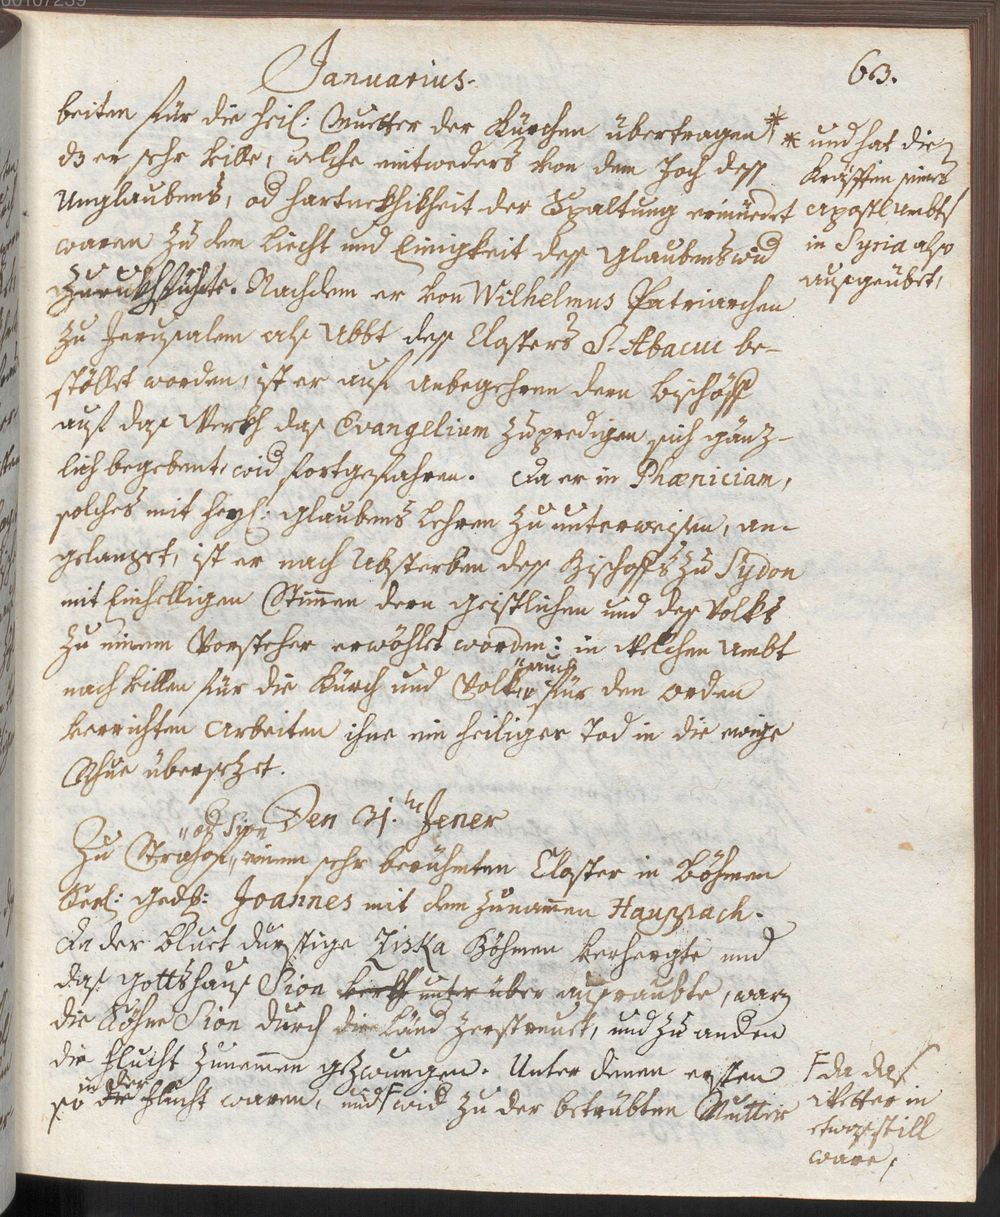 Januarius.
63.
beiten für die heil: Muetter der Kürchen übertragen *
dz er sehr viele, welche eintweders von dem Joch dess
Unglaubens, od hartnekhikheit der Spaltung ermüedet
waren zu dem liecht und Einigkeit dess glaubens wid
zurükhführte. Nachdem er von Wilhelmus Patriarchen
zu Jerusalem als Abbt dess Closters S. Abacuc be-
stöllet worden, ist er auf anbegehren dern Bischöff
auf das Werkh das Evangelium zu predigen sich gänz-
lich begebent wid fortgefahren. Da er in Phœniciam,
solches mit heyl: glaubens lehren zu unterweisen, an-
gelanget, ist er nach Absterben dess Bischoffs zu Sydon
mit Einhelligen Stimen dern geistlichen und dess Volks
zu einem Vorsteher erwöhlet worden: in welchem Ambt
nach villen für die Kürch und Volk, auch für den orden
verrichten Arbeiten ihne ein heiliger Tod in die ewige
Rhue übersezet.
* und hat die
Kräfften seines
Apostl Ambts
in Syria also
ausgeübet,
Den 31.ten Jener
Zu Strahof, od Sion einem sehr berühmten Closter in Böhmen
Seel: gedh: Joannes mit dem zunamen Hauppach.
Da der bluet durstige Ziska Böhmen verhergte und
das gottshaus Sion über ausraubte, warn
die Söhne Sion durch die Länd zerstreuet, und zu anden
die flucht zunemen gezwungen. Unter denen ersten
so in der flucht waren, und F wid zu der betrübten Mutter
F da das
Wetter in
etwas still
ware,